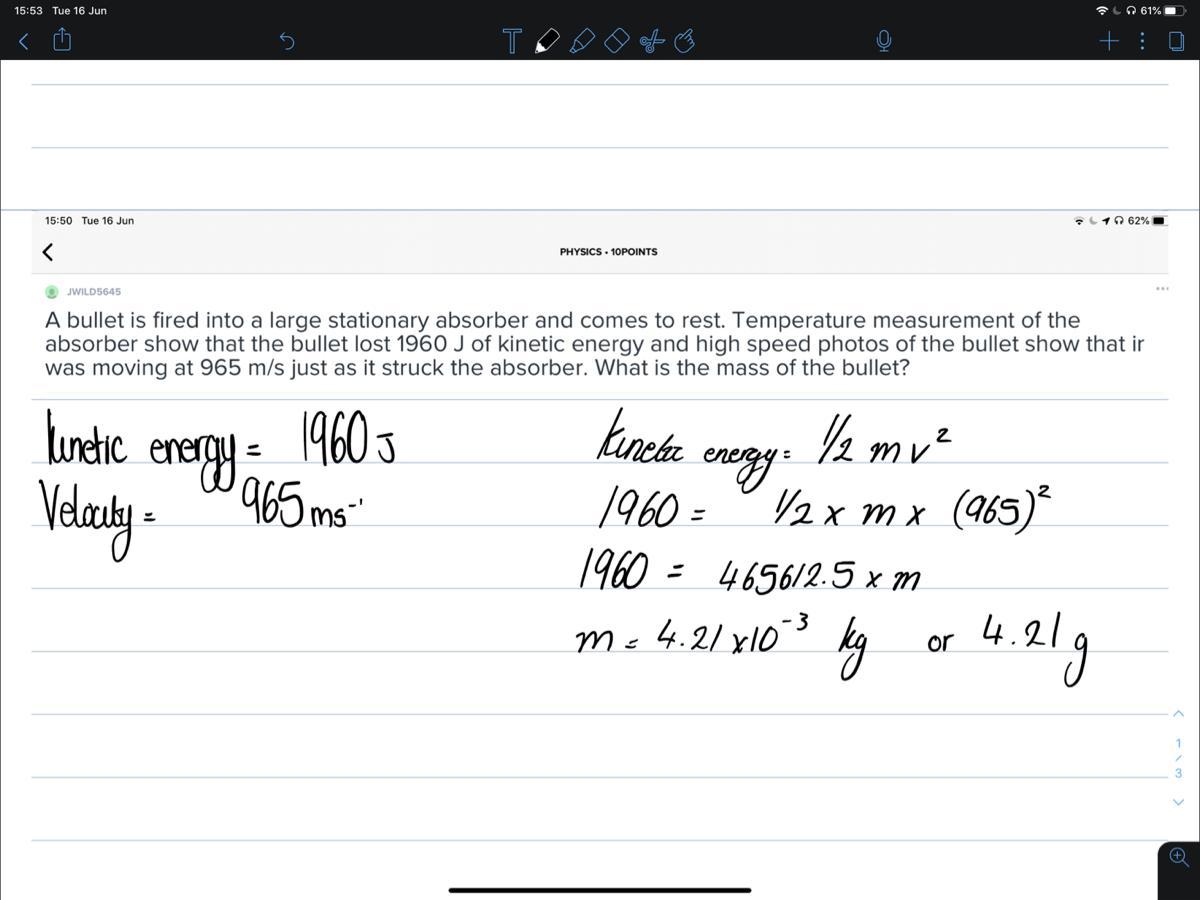 15:53 Tue 16 Jun
61%
T
15:50 Tue 16 Jun
62%
PHYSICS • 10POINTS
JWILD5645
A bullet is fired into a large stationary absorber and comes to rest. Temperature measurement of the
absorber show that the bullet lost 1960 J of kinetic energy and high speed photos of the bullet show that ir
was moving at 965 m/s just as it struck the absorber. What is the mass of the bullet?
kinetic energy = 1960 J
Velocity = 965 ms⁻¹
Kinetic energy = 1/2 m v²
1960 = 1/2 x m x (965)²
1960 = 465612.5 x m
m = 4.21 x10⁻³ kg or 4.21 g
1
/
3